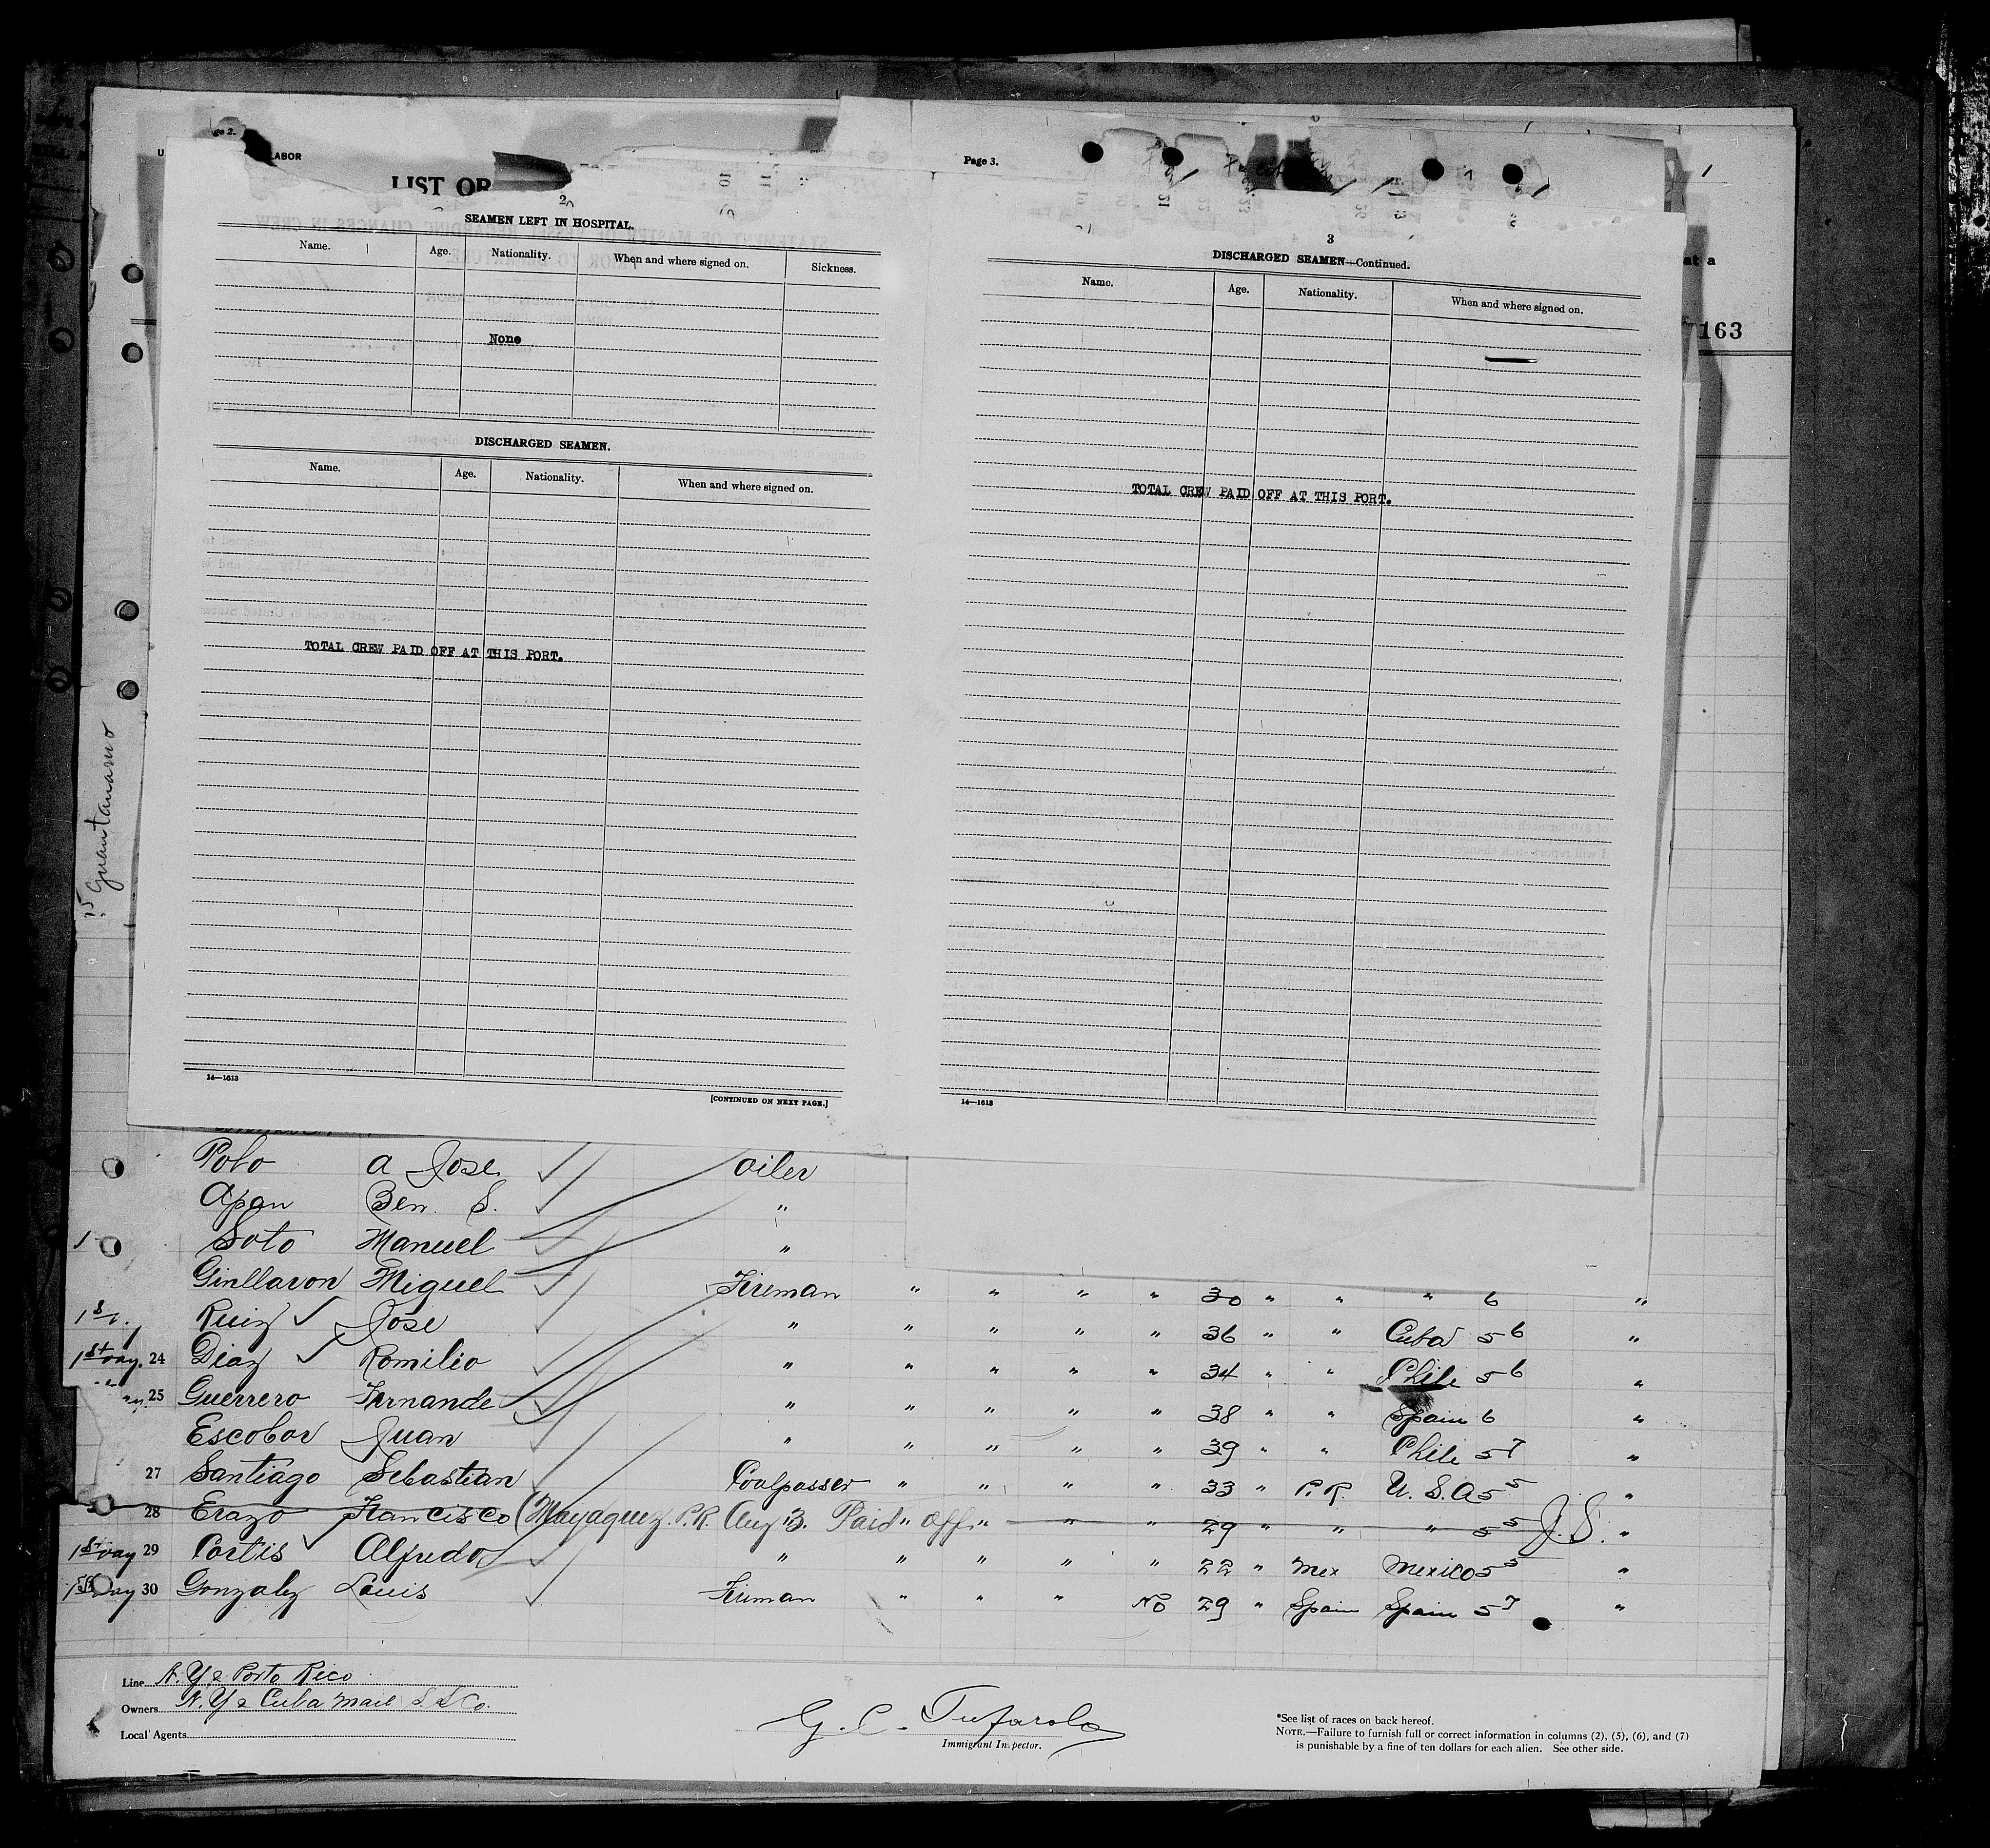 LABOR
LIST OR
2
SEAMEN LEFT IN HOSPITAL.
Name. Age. Nationality. When and where signed on. Sickness.
None
DISCHARGED SEAMEN.
Name. Age. Nationality. When and where signed on.
TOTAL CREW PAID OFF AT THIS PORT.
14—1613
[CONTINUED ON NEXT PAGE.]
Page 3.
3
DISCHARGED SEAMEN—Continued.
Name. Age. Nationality. When and where signed on.
TOTAL CREW PAID OFF AT THIS PORT.
14—1613
at a
163
Guantanamo
Polo a Jose oiler
Apan Ben. S. "
Soto Manuel "
Ginllavon Miguel Fireman " " " " 30 " " " 6 "
Ruiz Jose " " " " " 36 " " Cuba 5 6 "
1st Day. 24 Diaz Romilio " " " " " 34 " " Chile 5 6 "
25 Guerrero Fernande " " " " " 38 " " Spain 6 "
Escobar Juan " " " " " 39 " " Chile 5 7 "
27 Santiago Sebastian Coalpasser " " " " 33 " P.R. U.S.A 5 5 "
28 Erazo Francisco (Mayaguez. P.R. Aug 3. Paid " Off. " " " 29 " " " 5 5 J.S. "
1st Day 29 Cortis Alfredo " " " " " 22 " Mex Mexico 5 5 "
1st Day 30 Gonzalez Louis Fireman " " " No 29 " Spain Spain 5 7 "
Line N.Y & Porto Rico
Owners N.Y & Cuba Mail S.S Co.
Local Agents
G. C. Tufarolo
Immigrant Inspector.
*See list of races on back hereof.
NOTE.—Failure to furnish full or correct information in columns (2), (5), (6), and (7)
is punishable by a fine of ten dollars for each alien. See other side.